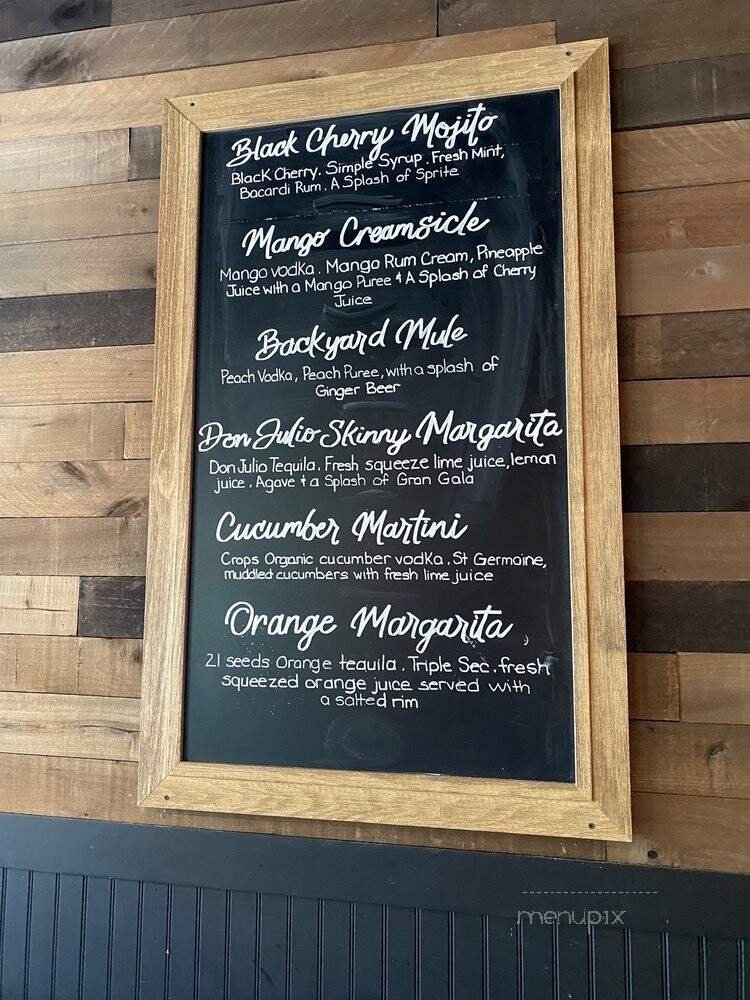 Black Cherry Mojito
Black Cherry. Simple Syrup. Fresh Mint,
Bacardi Rum. A Splash of Sprite
Mango Creamsicle
Mango vodka. Mango Rum Cream, Pineapple
Juice with a Mango Puree & A Splash of Cherry
Juice
Backyard Mule
Peach Vodka, Peach Puree, with a splash of
Ginger Beer
Don Julio Skinny Margarita
Don Julio Tequila. Fresh squeeze lime juice, lemon
juice. Agave & a Splash of Gran Gala
Cucumber Martini
Crops Organic cucumber vodka. St Germaine,
muddled cucumbers with fresh lime juice
Orange Margarita
21 seeds Orange tequila. Triple Sec. fresh
squeezed orange juice served with
a salted rim
menupix